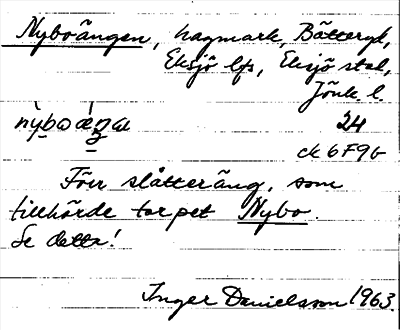 Nyboängen, hagmark, Bätteryd,
Eksjö lfs, Eksjö stad,
Jönk. l.
24
ek 6F9b
Förr slåtteräng, som
tillhörde torpet Nybo.
Se detta!
Inger Danielsson 1963.